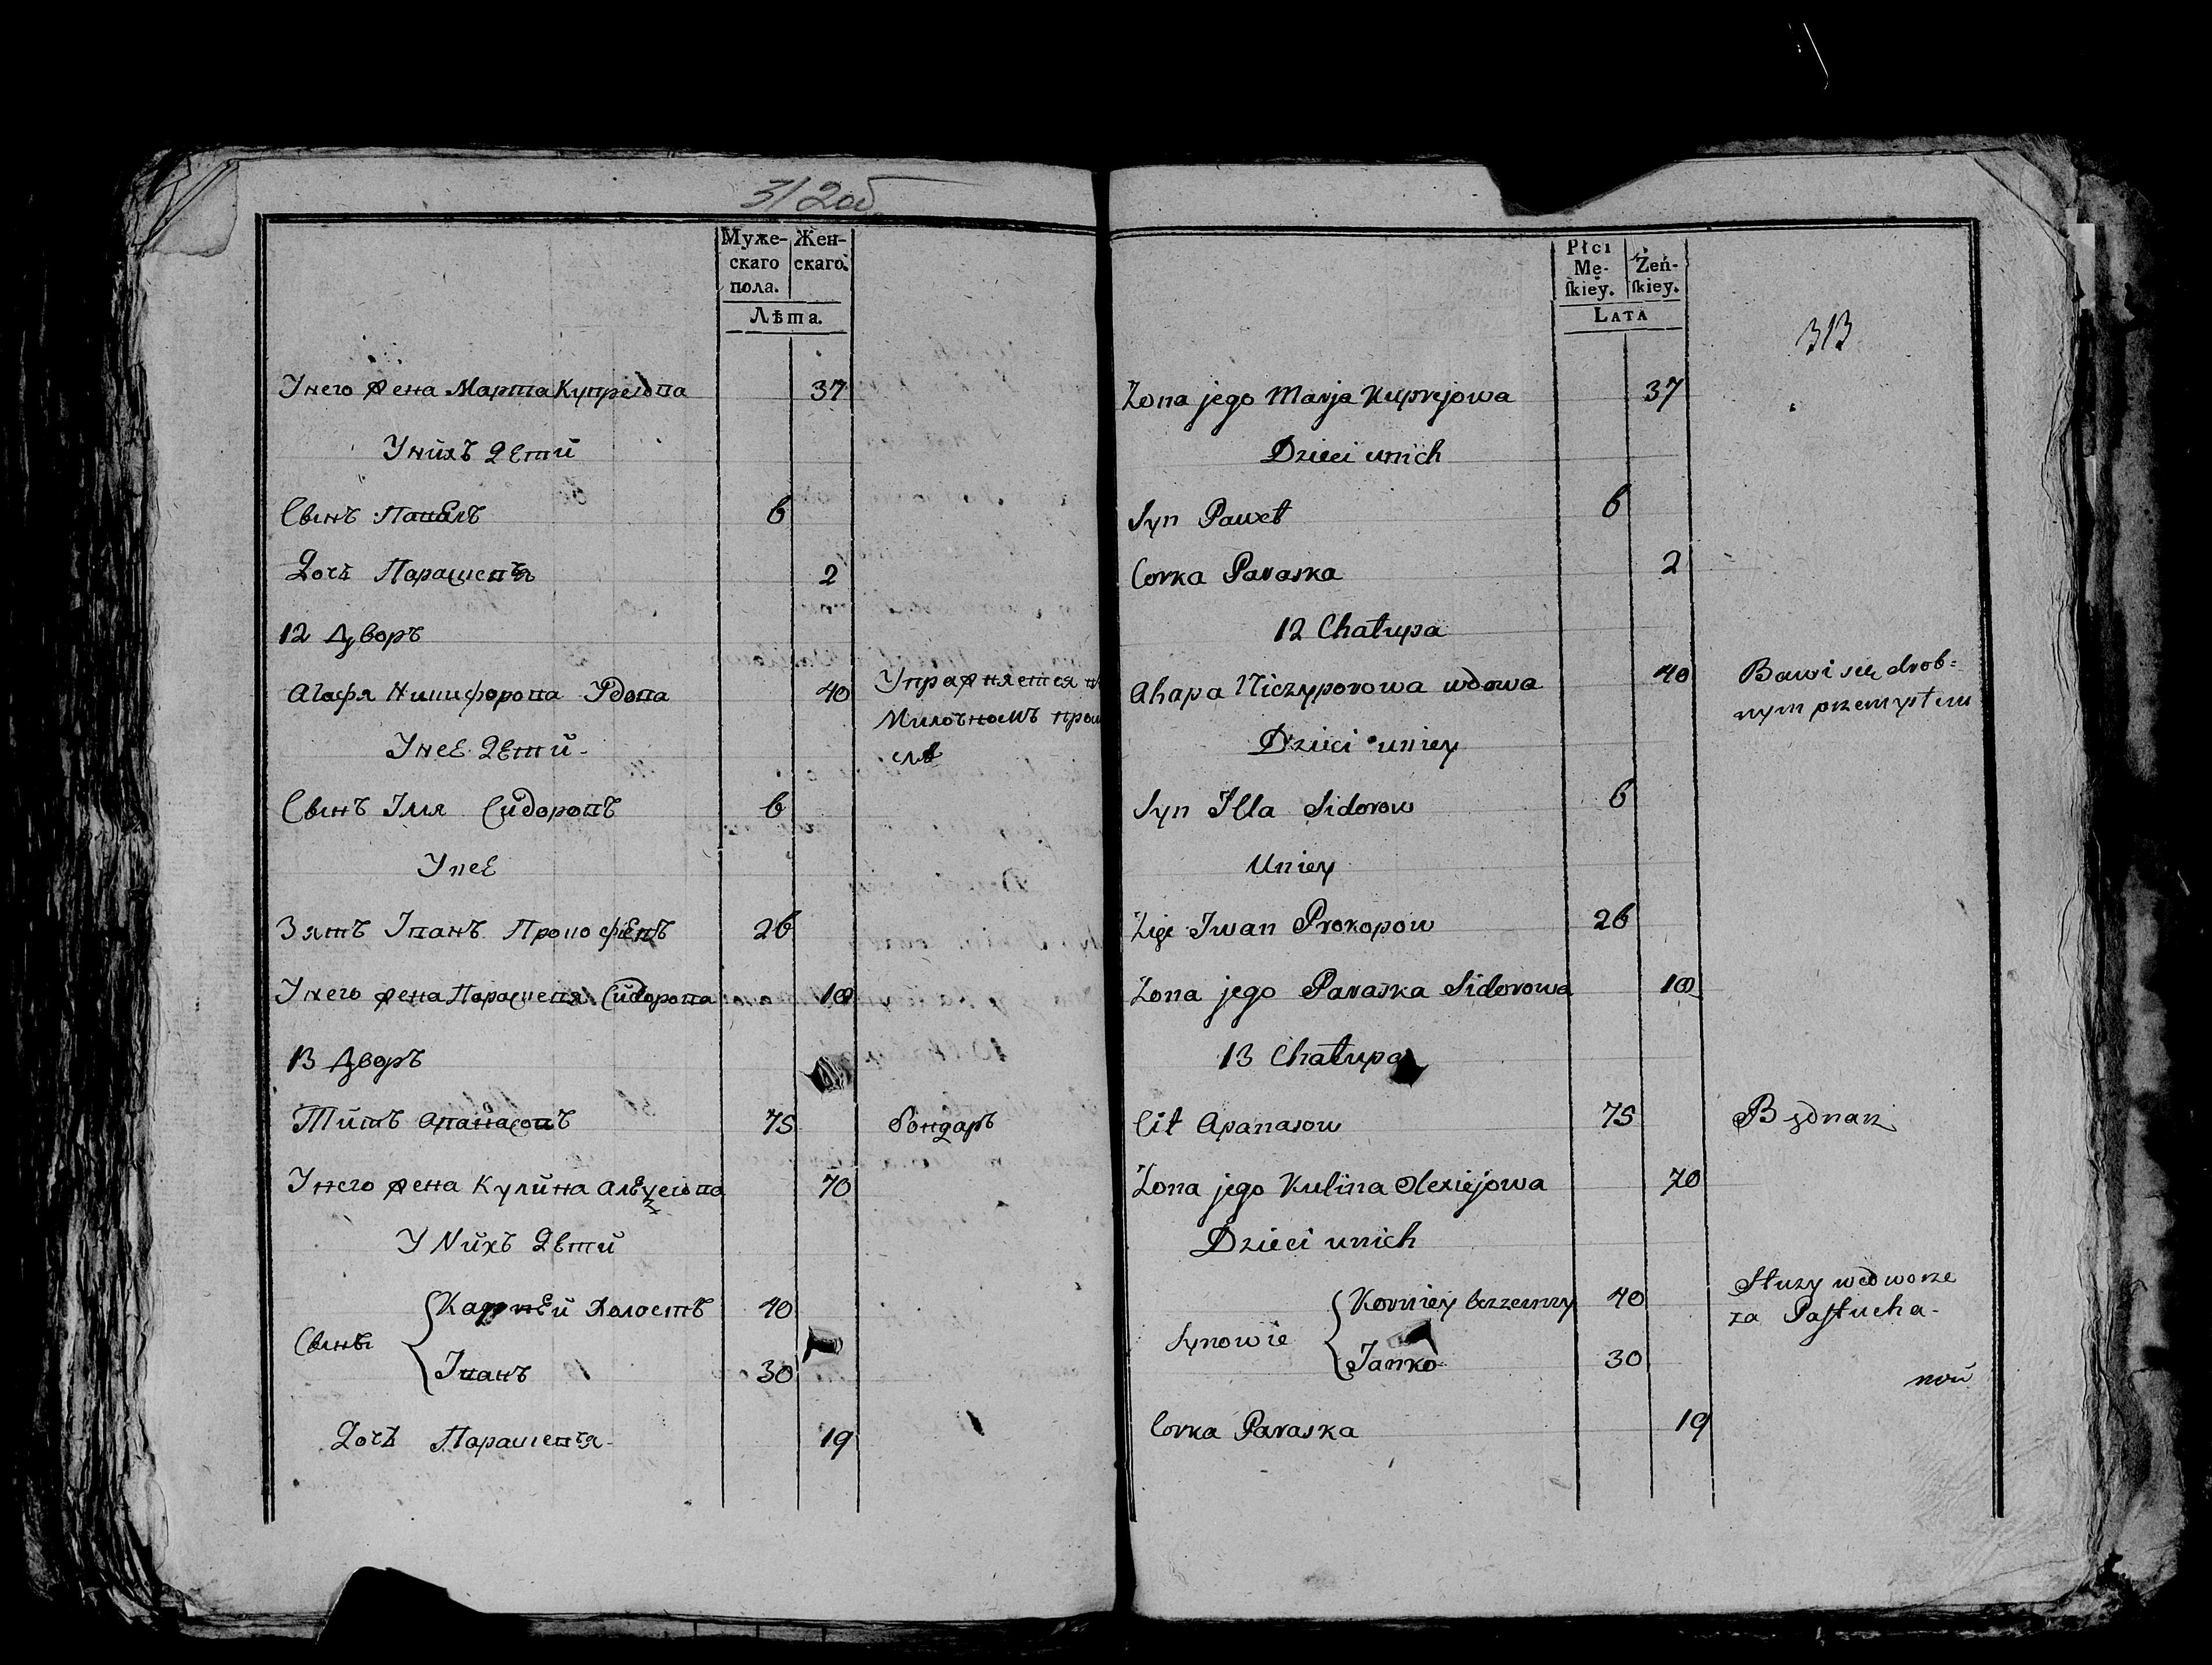 312об
Муже-
скаго
пола.
Жен-
скаго.
Лѣта.
Унего жена Марта Купреіова 37
Унихъ Дети
Сынъ Павелъ 6
Дочь Парасцевья 2
12 Дворъ
Агафя Ничифорова Вдова 40
Упражняется в
Милочномъ пром
слѣ
Унее Дети
Сынъ Іля Сидоровъ 6
Унее
Зять Іванъ Прокофѣвъ 26
Унего жена Парасцевя Сидорова 18
13 Дворъ
Титъ Апанасовъ 75 Бондаръ
Унего жена Кулина Алексеіова 70
У Нихъ Дети
Сыны
Карнѣй Холостъ 40
Іванъ 30
Дочь Парасцевья 19
Płci
Mę-
ſkiey.
Żeń-
ſkiey.
LATA
313
Zona jego Marja Kuprejowa 37
Dzieci unich
Syn Paweł 6
Corka Paraska 2
12 Chałupa
Ahapa Niczyporowa wdowa 40
Bawi się drob=
nym przemysłem
Dzieci uniey
Syn Illa Sidorow 6
Uniey
Zięć Iwan Prokopow 26
Zona jego Paraska Sidorowa 18
13 Chałupa
Cit Apanasow 75 Będnarz
Zona jego Kulina Olexiejowa 70
Dzieci unich
Synowie
Korniey bezzenny 40
Służy wedworze
za Pastucha
Janko 30
Corka Paraska 19